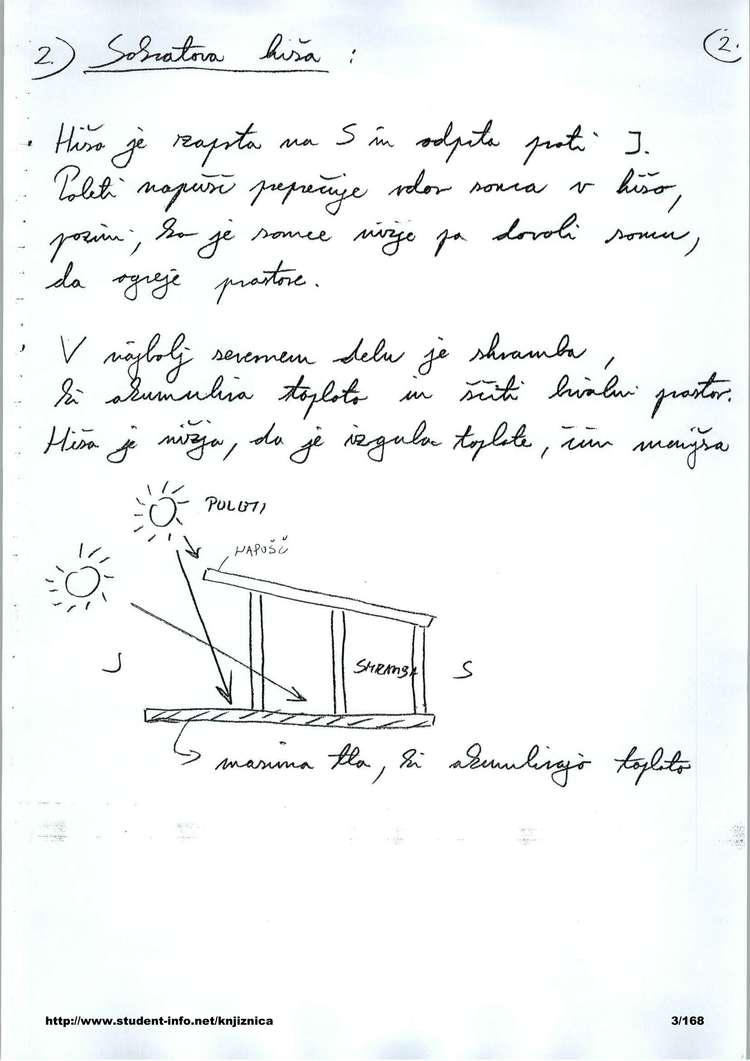 2.) Sokratova hiša :
2.
Hiša je zaprta na S in odprta proti J.
Poleti napušč preprečuje vdor sonca v hišo,
pozimi, ko je sonce nižje pa dovoli soncu,
da ogreje prostore.
V najbolj severnem delu je shramba,
ki akumulira toploto in ščiti bivalni prostor.
Hiša je nižja, da je izguba toplote, čim manjša
POLETI
NAPUŠČ
J
SHRAMBA
S
masivna tla, ki akumulirajo toploto
http://www.student-info.net/knjiznica
3/168